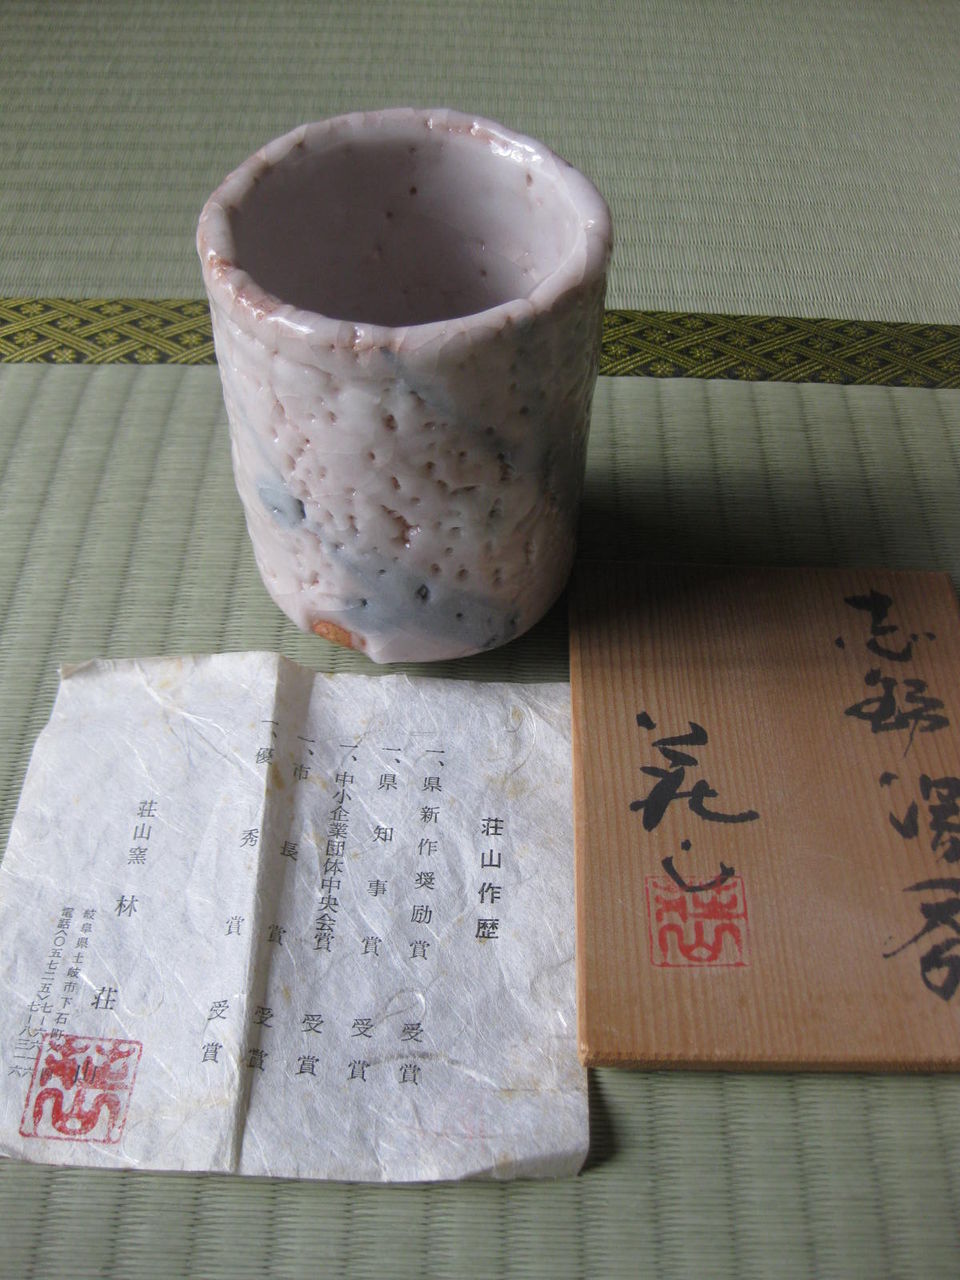 志野湯呑
荘山
荘山作歴
一、県新作奨励賞 受賞
一、県知事賞 受賞
一、中小企業団体中央会賞 受賞
一、市長賞 受賞
一、優秀賞 受賞
荘山窯 林 荘山
岐阜県土岐市下石町